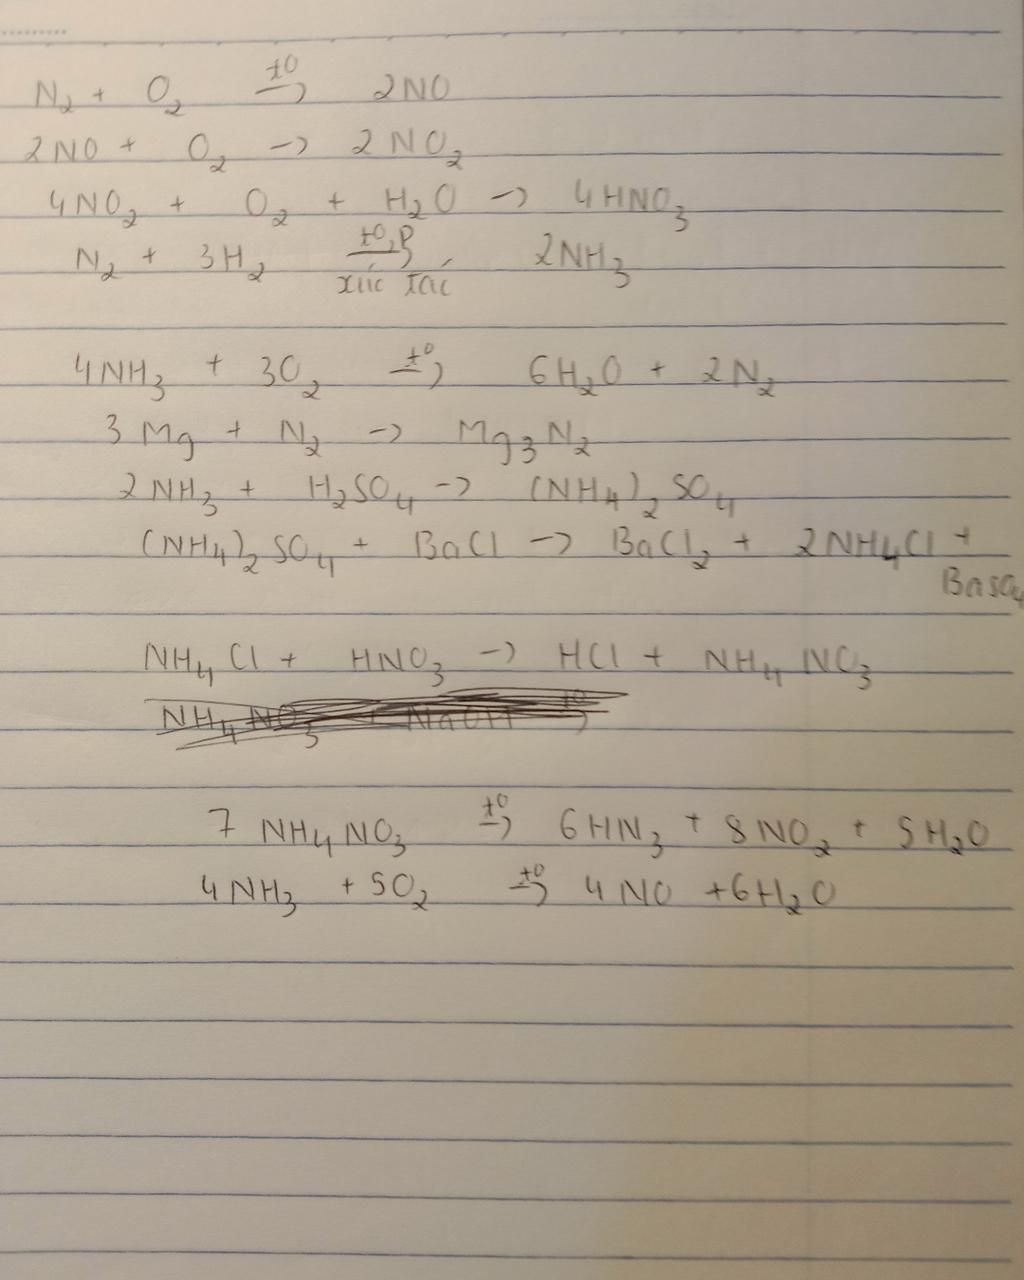 N₂ + O₂ t⁰→ 2NO
2NO + O₂ → 2NO₂
4NO₂ + O₂ + H₂O → 4HNO₃
N₂ + 3H₂ t⁰,P→ xúc tác 2NH₃
4NH₃ + 3O₂ t⁰→ 6H₂O + 2N₂
3Mg + N₂ → Mg₃N₂
2NH₃ + H₂SO₄ → (NH₄)₂SO₄
(NH₄)₂SO₄ + BaCl → BaCl₂ + 2NH₄Cl +
BaSO₄
NH₄Cl + HNO₃ → HCl + NH₄NO₃
NH₄NO₃ + NaOH t⁰→
7NH₄NO₃ t⁰→ 6HN₃ + 8NO₂ + 5H₂O
4NH₃ + 5O₂ t⁰→ 4NO + 6H₂O